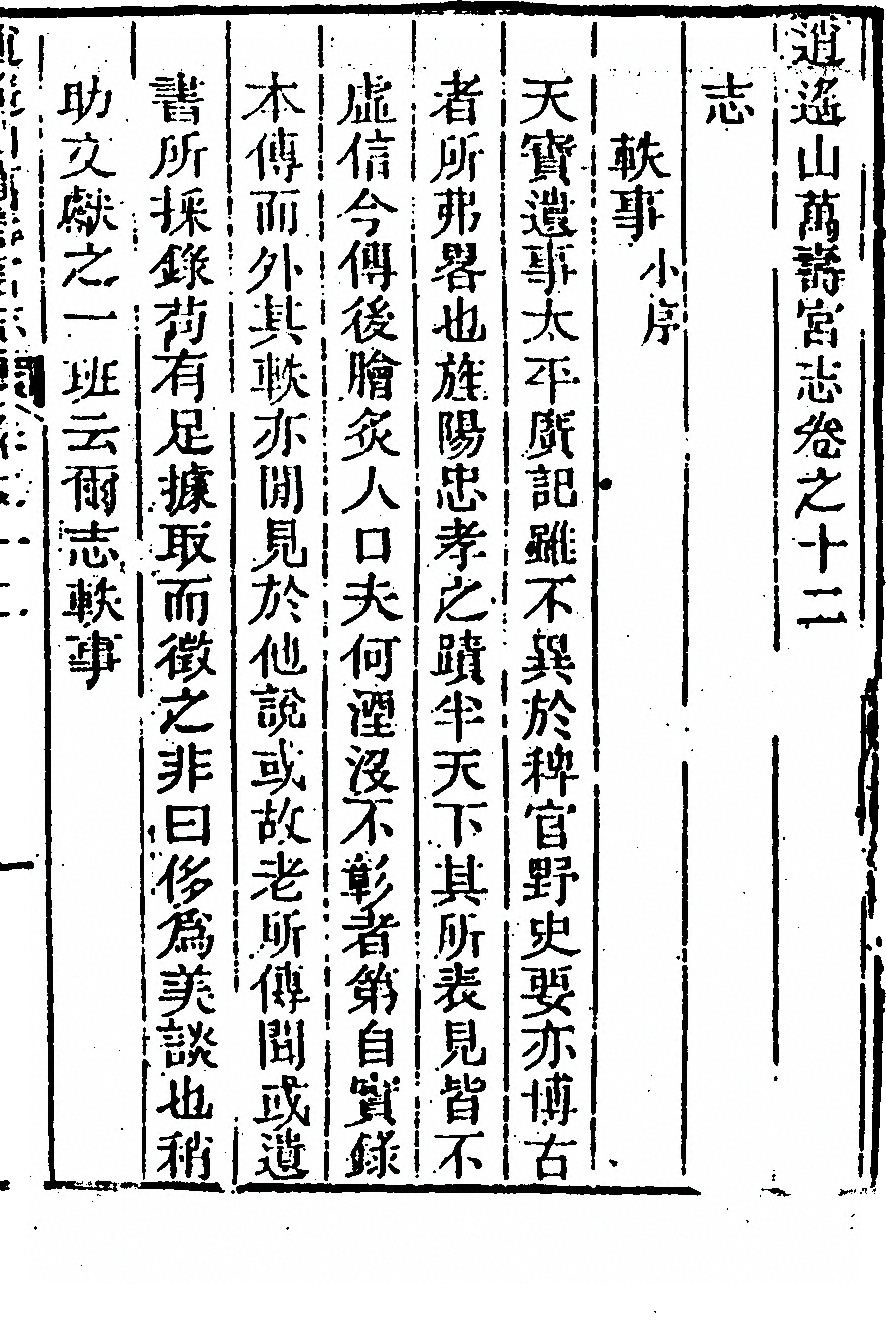 逍遙山萬壽宮志卷之十二
志
軼事小序
天寶遺事太平廣記雖不異於稗官野史要亦博古
者所弗畧也旌陽忠孝之蹟半天下其所表見皆不
虛信今傳後膾炙人口夫何湮沒不彰者第自實錄
本傳而外其軼亦閒見於他說或故老所傳聞或遺
書所採錄茍有足據取而徵之非曰侈爲美談也稍
助文獻之一班云爾志軼事